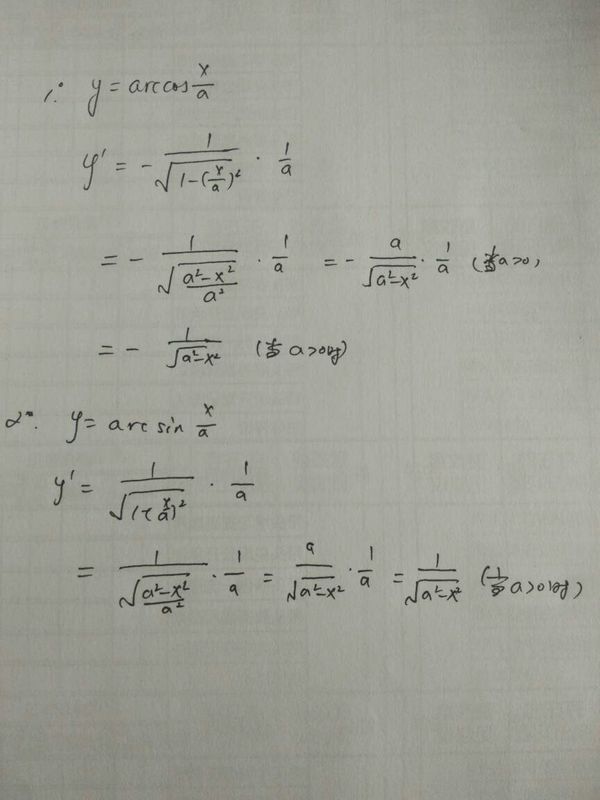 1°. y = arccos x/a
y' = - 1/√(1-(x/a)²) · 1/a
= - 1/√((a²-x²)/a²) · 1/a = - a/√(a²-x²) · 1/a (当a>0,
= - 1/√(a²-x²) (当a>0时)
2°. y = arcsin x/a
y' = 1/√(1-(x/a)²) · 1/a
= 1/√((a²-x²)/a²) · 1/a = a/√(a²-x²) · 1/a = 1/√(a²-x²) (当a>0时)